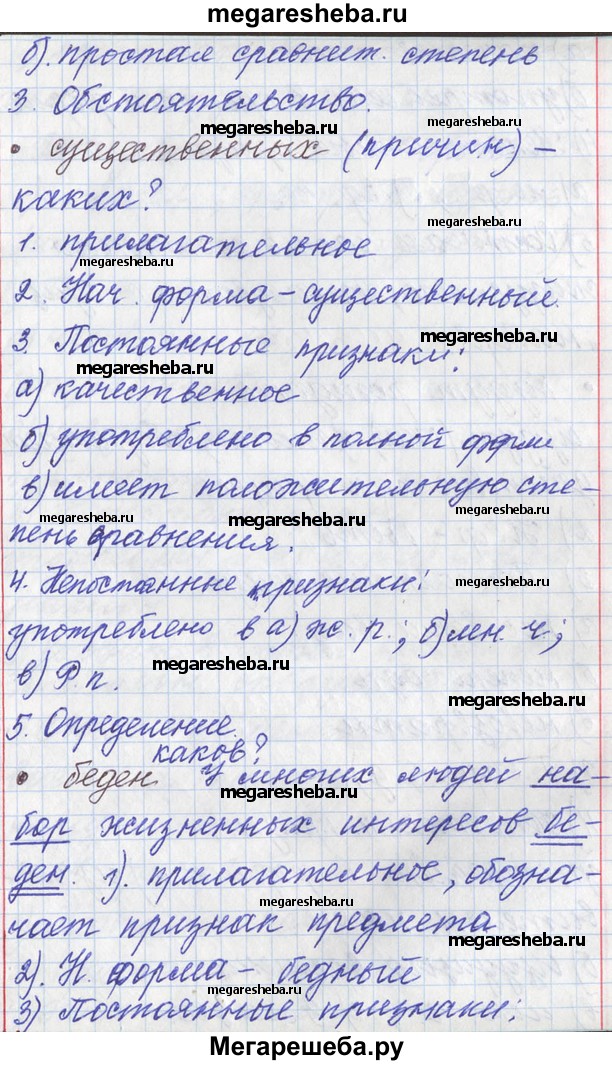 megaresheba.ru
б). простая сравнит. степень
3. Обстоятельство.
megaresheba.ru
• существенных (причин) –
каких?
megaresheba.ru
1. прилагательное
megaresheba.ru
2. Нач. форма – существенный.
3. Постоянные признаки:
megaresheba.ru
megaresheba.ru
а) качественное
б) употреблено в полной форме
в) имеет положительную сте-
megaresheba.ru
megaresheba.ru
megaresheba.ru
пень сравнения.
4. Непостоянные признаки:
megaresheba.ru
употреблено в а) ж. р.; б) мн. ч.;
в) Р. п.
megaresheba.ru
megaresheba.ru
5. Определение.
каков?
• беден У многих людей на-
megaresheba.ru
бор жизненных интересов бе-
ден. 1). прилагательное, обозна-
чает признак предмета
megaresheba.ru
2). Н. форма – бедный
megaresheba.ru
3) Постоянные признаки:
Мегарешеба.ру